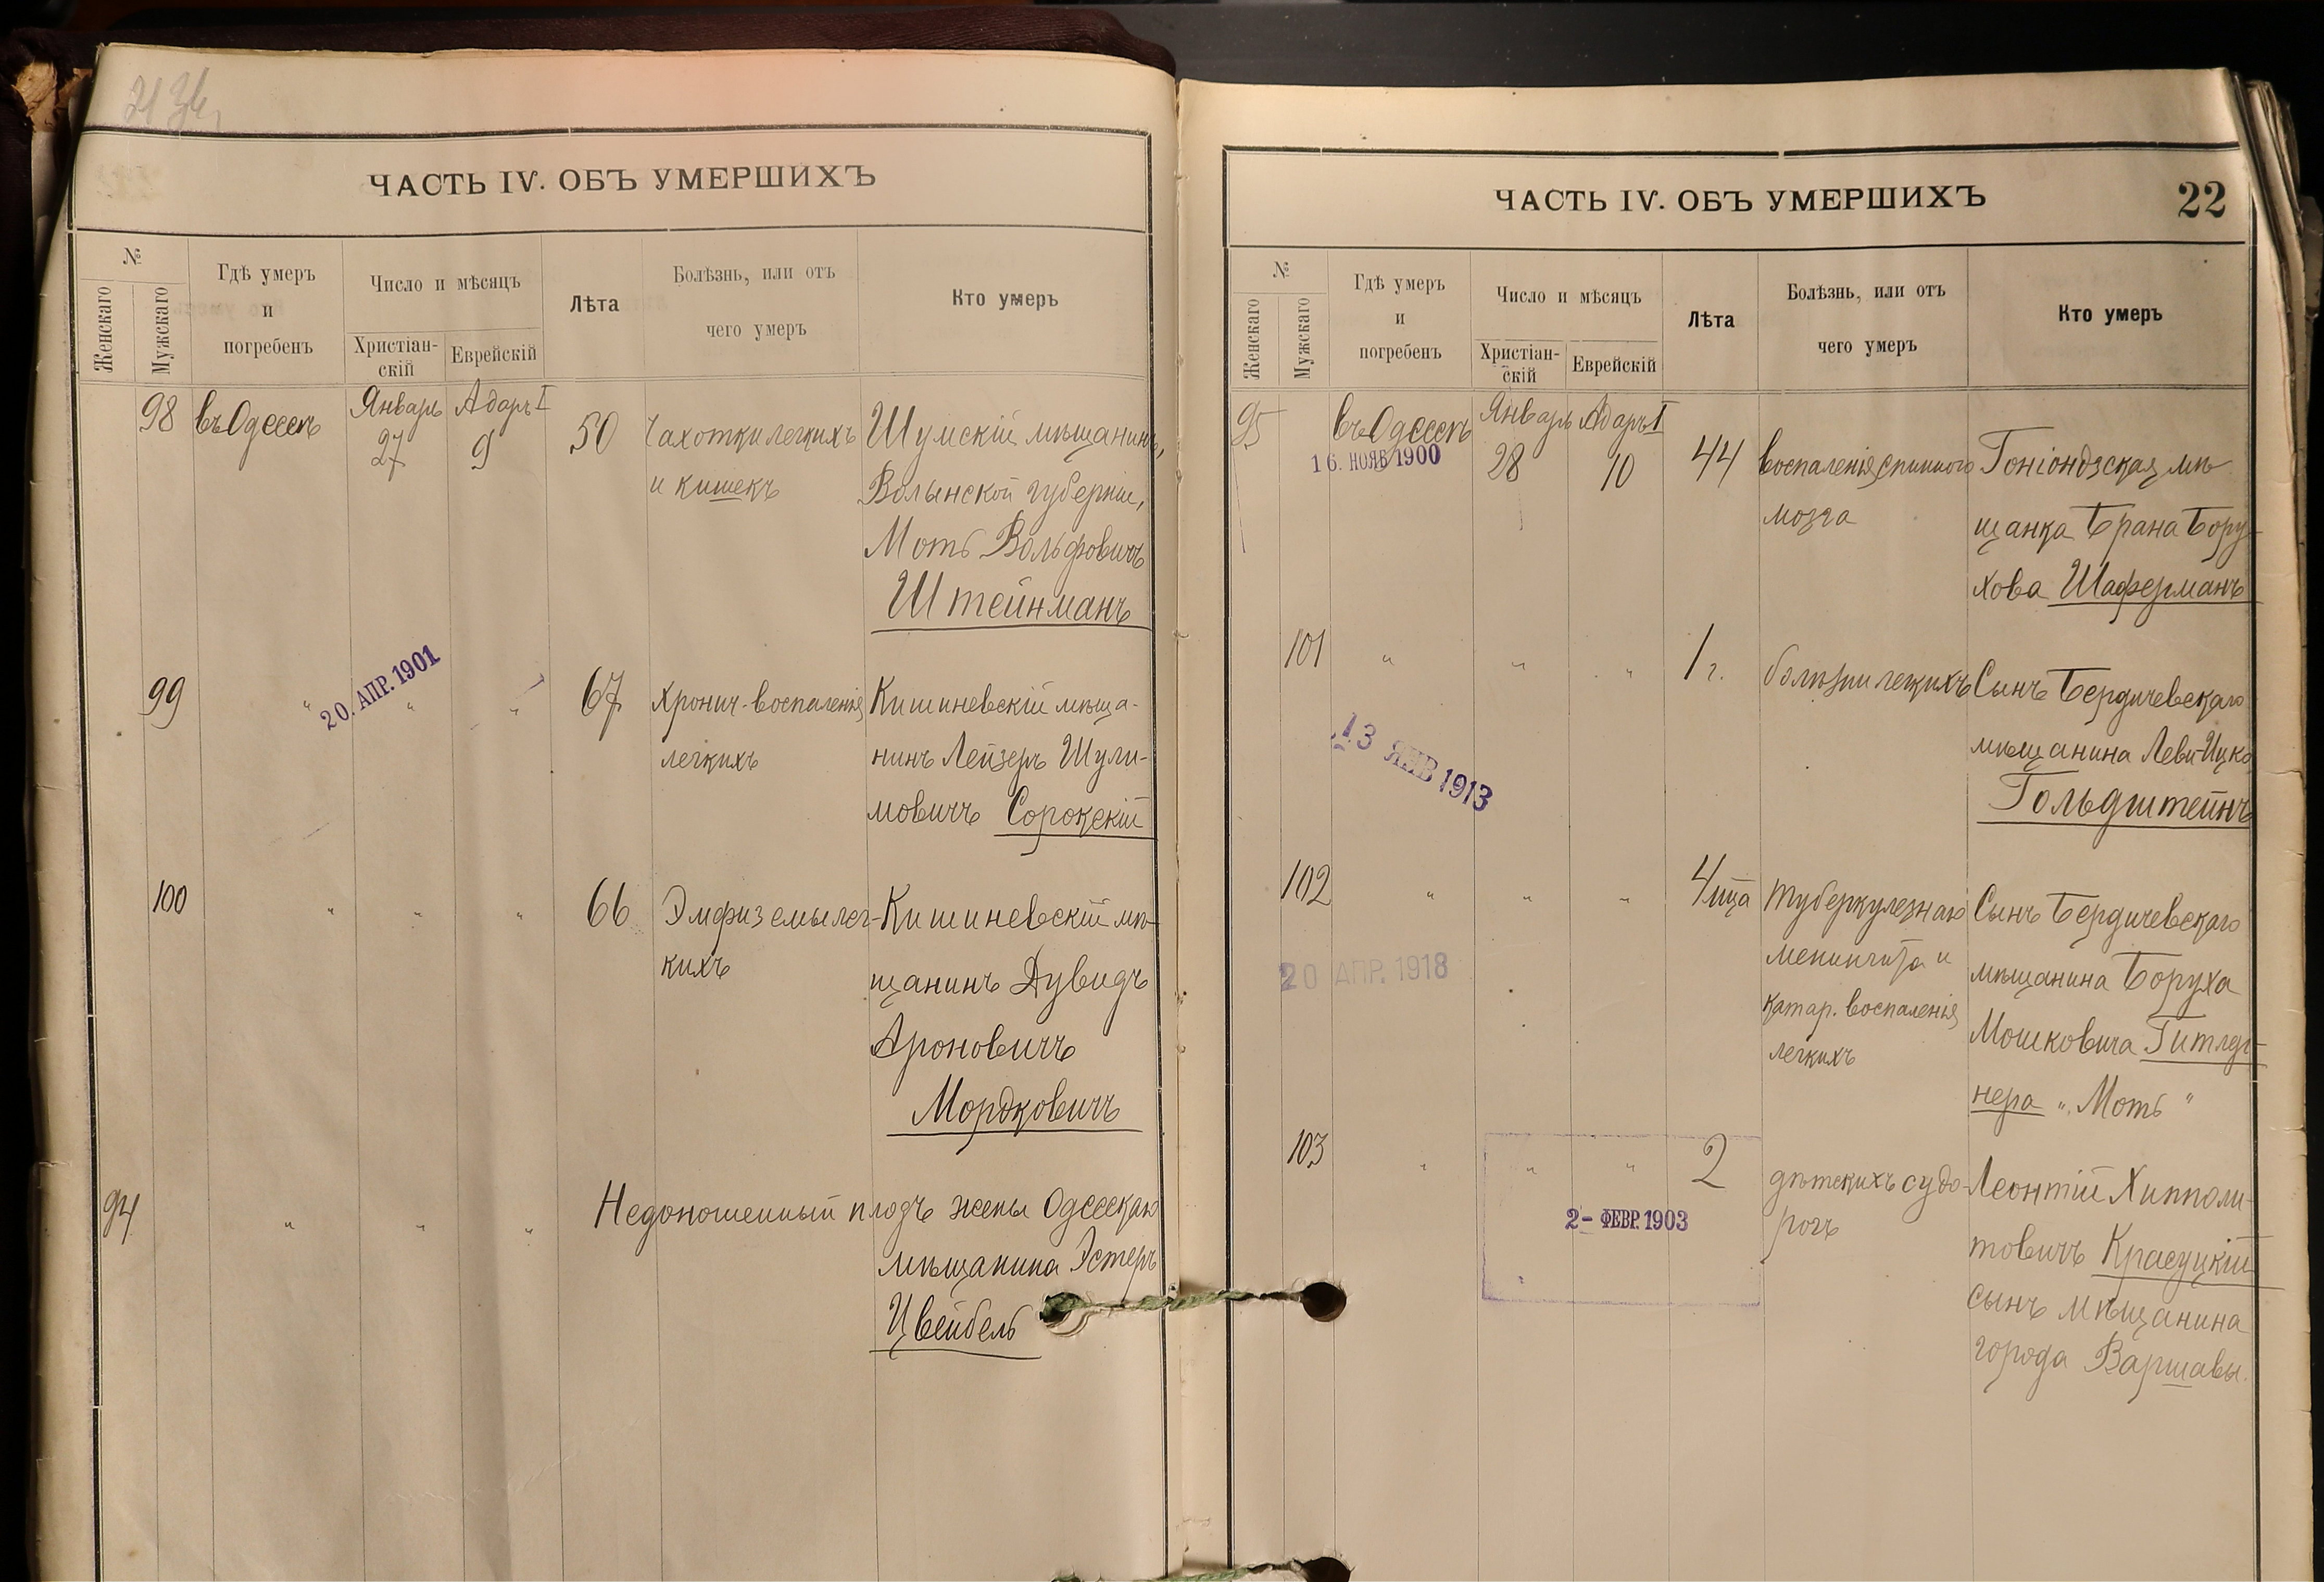 ЧАСТЬ IV. ОБЪ УМЕРШИХЪ
№
Женскаго
Мужскаго
Гдѣ умеръ
и
погребенъ
Число и мѣсяцъ
Христіан-
скій
Еврейскій
Лѣта
Болѣзнь, или отъ
чего умеръ
Кто умеръ
98
въ Одессѣ
Январь
27
Адаръ I
9
50
Чахотки легкихъ
и кишекъ
Шумскій мѣщанинъ,
Волынской губерніи,
Моть Вольфовичъ
Штейнманъ
99
"
20. АПР. 1901
"
"
67
Хронич. воспаленія
легкихъ
Кишиневскій мѣща-
нинъ Лейзеръ Шули-
мовичъ Сорокскій
100
"
"
"
66
Эмфиземы лег-
кихъ
Кишиневскій мѣ-
щанинъ Дувидъ
Ароновичъ
Мордковичъ
94
"
"
"
Недоношенный плодъ жены Одесскаго
мѣщанина Эстеръ
Цвейбель
ЧАСТЬ IV. ОБЪ УМЕРШИХЪ
22
№
Женскаго
Мужскаго
Гдѣ умеръ
и
погребенъ
Число и мѣсяцъ
Христіан-
скій
Еврейскій
Лѣта
Болѣзнь, или отъ
чего умеръ
Кто умеръ
95
въ Одессѣ
16. НОЯБ 1900
Январь
28
Адаръ I
10
44
воспаленія спинного
мозга
Гоніондзская мѣ-
щанка Брана Бору-
хова Шаферманъ
101
"
"
"
1 г.
болѣзни легкихъ
Сынъ Бердичевскаго
мѣщанина Леви-Ицко
Гольдштейнъ
13 ЯНВ 1913
102
"
"
"
4 м-ца
туберкулезнаго
менингита и
катар. воспаленія
легкихъ
Сынъ Бердичевскаго
мѣщанина Боруха
Мошковича Гитлер-
нера "Моть"
20 АПР. 1918
103
"
"
"
2
2- ФЕВР. 1903
дѣтскихъ судо-
рогъ
Леонтій Хипполи-
товичъ Красуцкій
сынъ мѣщанина
города Варшавы.